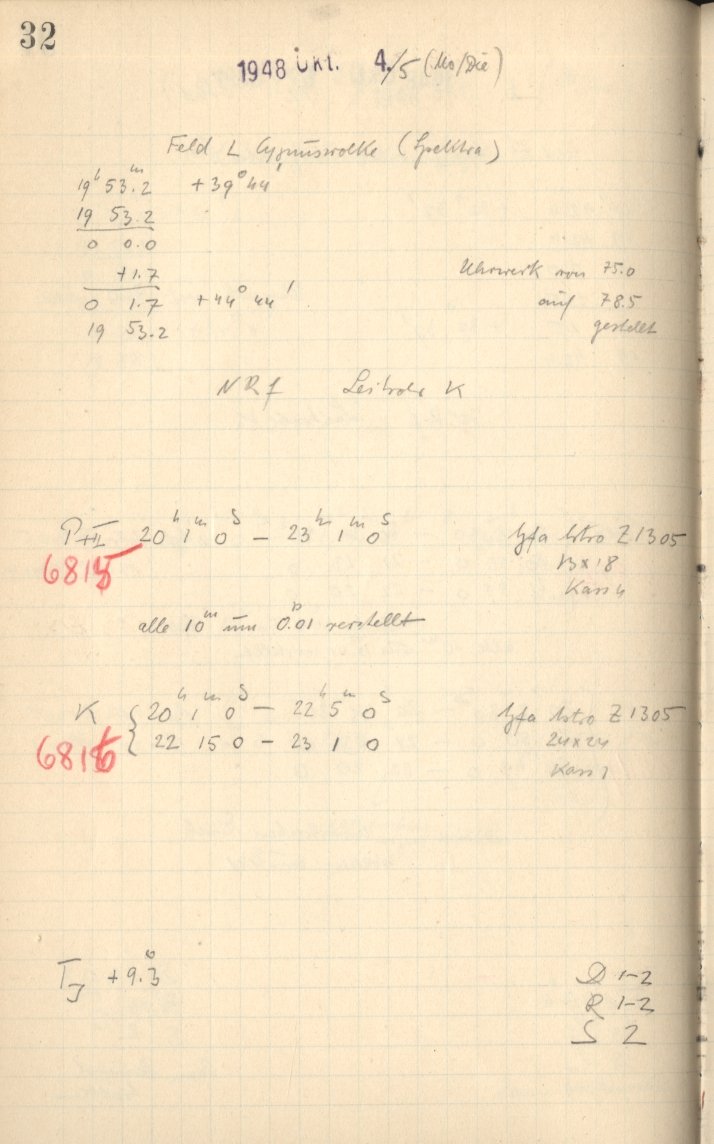 32
1948 Okt. 4./5 (Mo/Die)
Feld L Cygnuswolke (Spektra)
19ʰ 53ᵐ.2 +39° 44'
19 53.2
0 0.0
+1.7
0 1.7 +44° 44'
19 53.2
Uhrwerk von 75.0
auf 78.5
gestellt
NRf Leitrohr K
P+II 20ʰ 1ᵐ 0ˢ — 23ʰ 1ᵐ 0ˢ Agfa Astro Z 1305
6815
13x18
Kass
alle 10ᵐ um 0.01 verstellt
K { 20ʰ 1ᵐ 0ˢ — 22ʰ 5ᵐ 0ˢ Agfa Astro Z 1305
22 15 0 — 23 1 0 24x24
6816
Kass
+9.°3
D 1-2
R 1-2
S 2